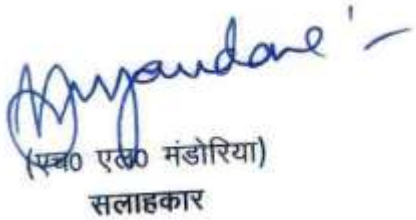 (एच० एल० मंडोरिया)
सलाहकार